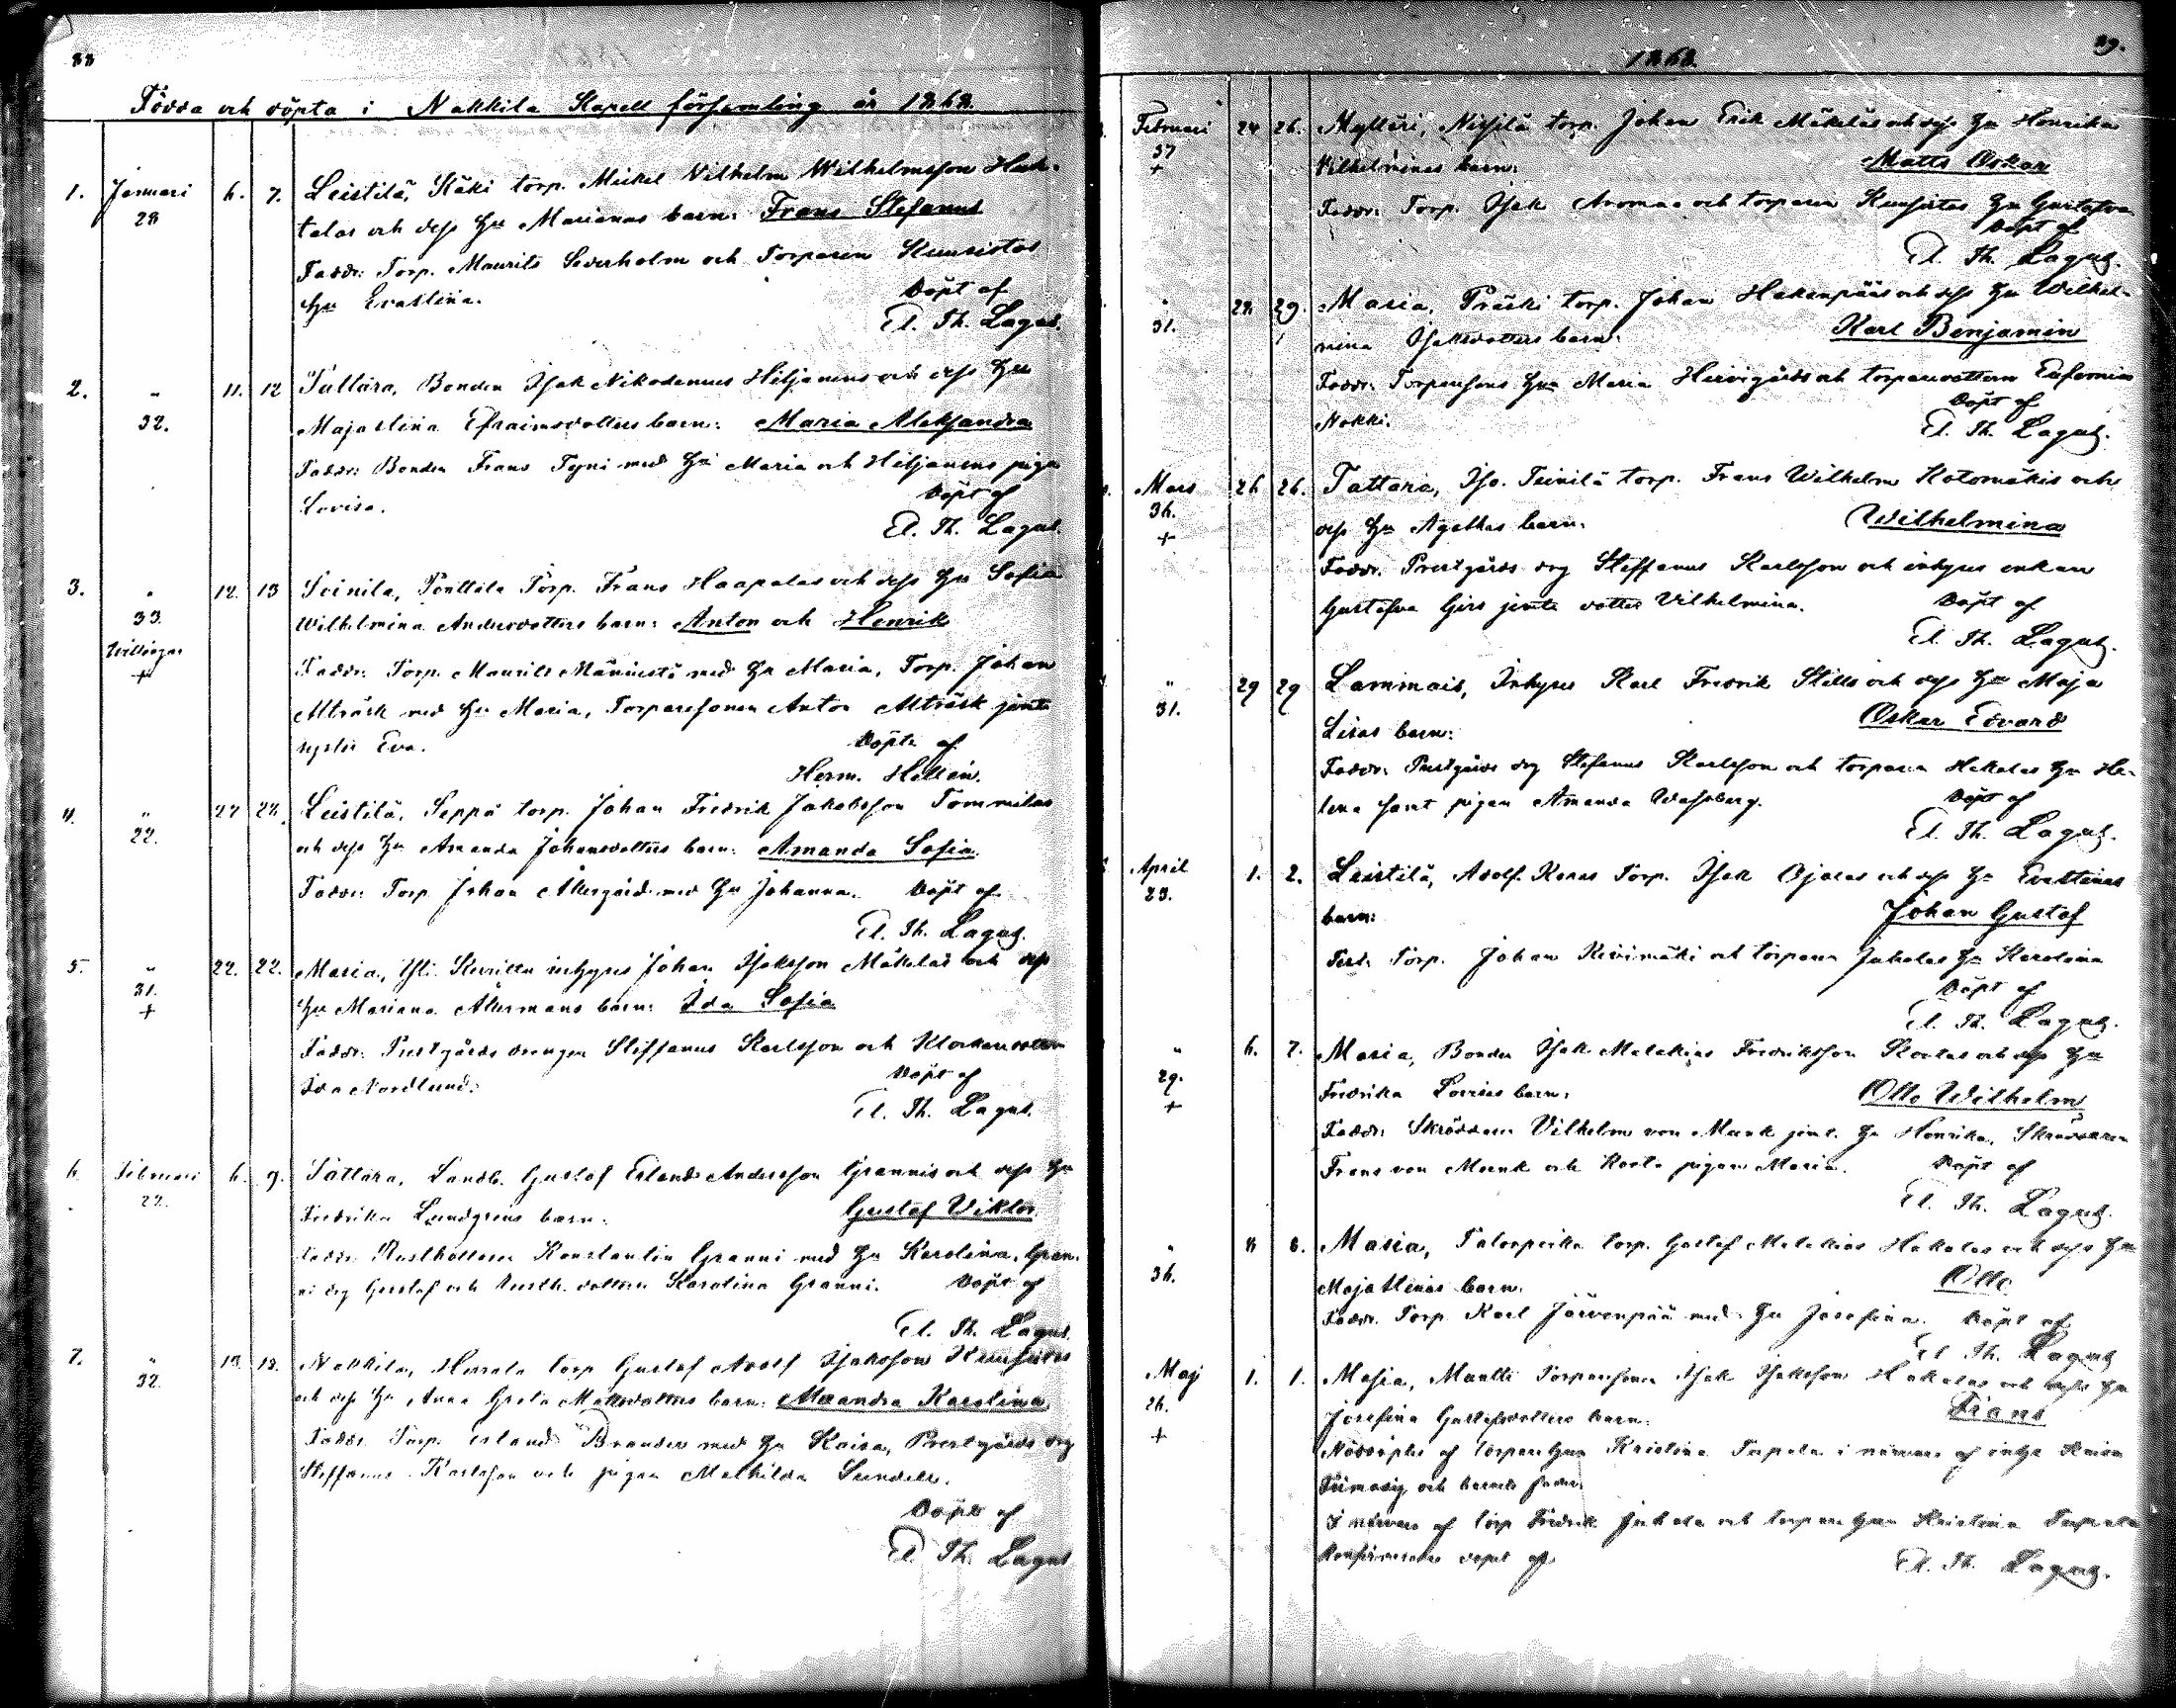 88
Födda och döpta i Nakkila Kapell församling år 1868.
1. Januari 6. 7. Leistilä, Käki torp. Mickel Vilhelm Wilhelmsson Haka-
28 talas och dess Hu Marianas barn: Frans Stefanus
Faddr: Torp. Maurits Sederholm och Torparen Kuusistos
Hu Evastina. Döpt af
A. Th. Lagus.
2. " 11. 12 Tattara, Bonden Isak Nikodemus Hiljanens och dess Hu
32. Majastina Efraimsdotters barn: Maria Aleksandra
Faddr: Bonden Frans Tyni med Hu Maria och Hiljanens piga
Lovisa. Döpt af
A. Th. Lagus.
3. " 12. 13 Soinila, Penttala Torp. Frans Haapalas och dess Hu Sofia
33. Wilhelmina Andersdotters barn: Anton och Henrik
Tvillingar
+ Faddr: Torp. Maurits Männistö med Hu Maria, Torp. Johan
Alträsk med Hu Maria, Torparesonen Anton Alträsk jemte
syster Eva. Döpte af
Herm. Hellén.
4. " 27 28. Leistilä, Seppä torp. Johan Fredrik Jakobsson Tommilas
22. och dess Hu Amanda Johansdotters barn: Amanda Sofia.
Faddr: Torp. Johan Åkergård med Hu Johanna. Döpt af
A. Th. Lagus.
5. " 22. 22. Masia, Yli inhyses Johan Isaksson Mäkeläs och dess
31.
+ Hu Mariana Åkermans barn: Ida Sofia
Faddr: Prestgårds drängen Steffanus Karlsson och Klockaredottern
Ida Nordlund. Döpt af
A. Th. Lagus.
6 Februari 6. 9. Tattara, Landb. Gustaf Erland Andersson Grannis och dess Hu
22. Fredrika Lundgrens barn: Gustaf Viktor.
Faddr: Rusthållaren Konstantin Granni med Hu Karolina, Gran-
ni drg Gustaf och Rusth. dottern Karolina Granni. Döpt af
A. Th. Lagus.
7. " 18. 18. Nakkila, torp Gustaf Adolf Isaksson
32. och dess Hu Anna Greta Matsdotters barn: Alexandra Karolina
Faddr: Torp. Erland Brander med Hu Kaisa, Prestgårds drg
Steffanus Karlsson och pigan Mathilda
Döpt af
A. Th. Lagus
1868. 89.
Februari 24 26. Mylläri, Nissilä torp. Johan Erik Mäkeläs och dess Hu Henrika
37
+ Vilhelminas barn: Matts Oskar
Faddr: Torp. Isak Aromaa och torparen Kuusistos Hu Gustafva
Döpt af
A. Th. Lagus.
" 28 29. Masia, Präski torp. Johan Hakanpääs och dess Hu Wilhel-
31. mina Isaksdotters barn: Karl Benjamin
Faddr: Torparesons Hu Maria och torparedottern Eufemia
Nokki. Döpt af
A. Th. Lagus.
Mars 26 26. Tattara, Iso-Teinilä torp. Frans Wilhelm Kotomäkis och
36.
+ dess Hu Agathas barn: Wilhelmina
Faddr: Prestgårds drg Steffanus Karlsson och inhyses enkan
Gustafva Girs jemte dotter Vilhelmina. Döpt af
A. Th. Lagus.
" 29 29 Lammais, Inhyses Karl Fredrik Stills och dess Hu Maja
31. Lisas barn: Oskar Edvard
Faddr: Prestgårds drg Stefanus Karlsson och torparen Hakalas Hu He-
lena samt pigan Amanda Döpt af
A. Th. Lagus.
April 1. 2. Leistilä, Adolf Torp. Isak Ojalas och dess Hu Evastinas
23. barn: Johan Gustaf
Test. Torp. Johan Kivimäki och torparen Jaakolas Hu Karolina
Döpt af
A. Th. Lagus.
" 6. 7. Masia, Bonden Isak Malakias Fredriksson och dess Hu
29.
+ Fredrika Lovisas barn: Otto Wilhelm
Faddr: Skräddaren Vilhelm von Munk jemt. Hu Henrika, Skräddaren
Frans von Munk och pigan Maria. Döpt af
A. Th. Lagus.
" 8 8. Masia, torp. Gustaf Malakias Hakalas och dess Hu
36. Majastinas barn: Otto
Faddr. Torp. Karl Järvenpää med Hu Josefina. Döpt af
A. Th. Lagus
Maj 1. 1. Masia, Mantti Torparesonen Isak Isaksson Hakalas och dess Hu
26.
+ Josefina Gustafsdotters barn: Frans
Nöddöpts af torpare Hun Kristina Tupala i närvaro af inhys
och barnets fader.
I närvaro af torp Fredrik och torpare Hun Kristina Tupala
döpt af A. Th. Lagus.